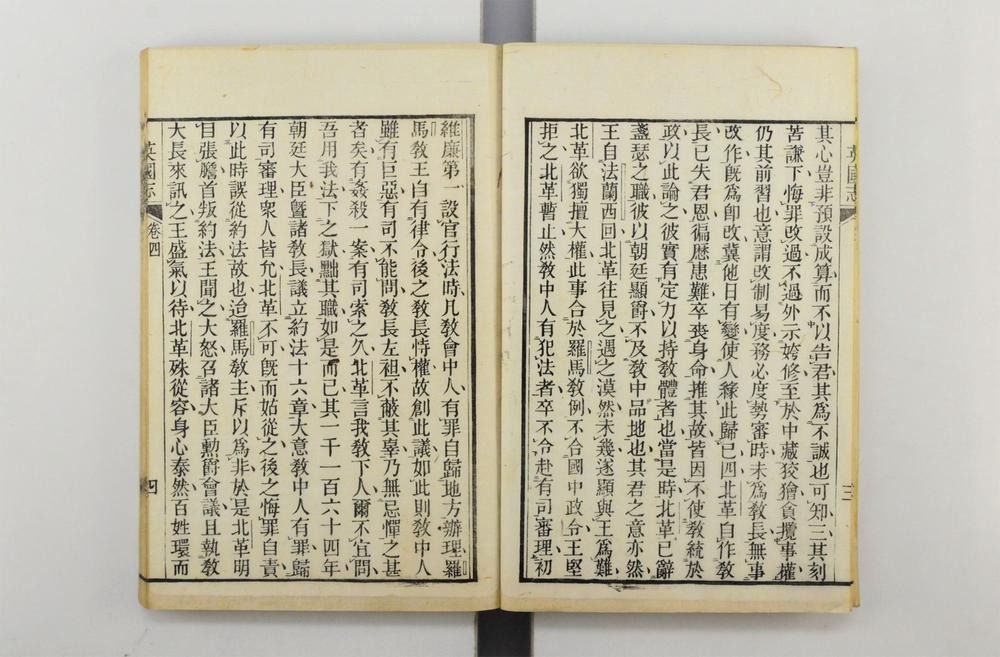 其心豈非預設成算而不以告君其爲不誠也可知三其刻
苦謙下悔罪改過不過外示姱修至於中藏狡獪貪攬事權
仍其前習也意謂改制易度務必度勢審時未爲敎長無事
改作旣爲卽改冀他日有變使人稱此歸已四北革自作敎
長已失君恩徧歷患難卒喪身命推其故皆因不使敎統於
政以此論之彼實有定力以持敎體者也當是時北革已辭
盞瑟之職彼以朝廷顯爵不及敎中品地也其君之意亦然
王自法蘭西回北革往見之遇之漠然未幾遂顯與王爲難
北革欲獨擅大權此事合於羅馬敎例不合國中政令王堅
拒之北革暫止然敎中人有犯法者卒不令赴有司審理初
英國志
三
維廉第一設官行法時凡敎會中人有罪自歸地方辦理羅
馬敎王自有律令後之敎長恃權故創此議如此則敎中人
雖有巨惡有司不能問敎長左袒不蔽其辜乃無忌憚之甚
者矣有姦殺一案有司索之久北革言我敎下人爾不宜問
吾用我法下之獄黜其職如是而已其一千一百六十四年
朝廷大臣曁諸敎長議立約法十六章大意敎中人有罪歸
有司審理衆人皆允北革不可旣而姑從之後之悔罪自責
以此時誤從約法故也迨羅馬敎主斥以爲非於是北革明
目張膽首叛約法王聞之大怒召諸大臣勲爵會議且執敎
大長來訊之王盛氣以待北革殊從容身心泰然百姓環而
英國志
卷四
四